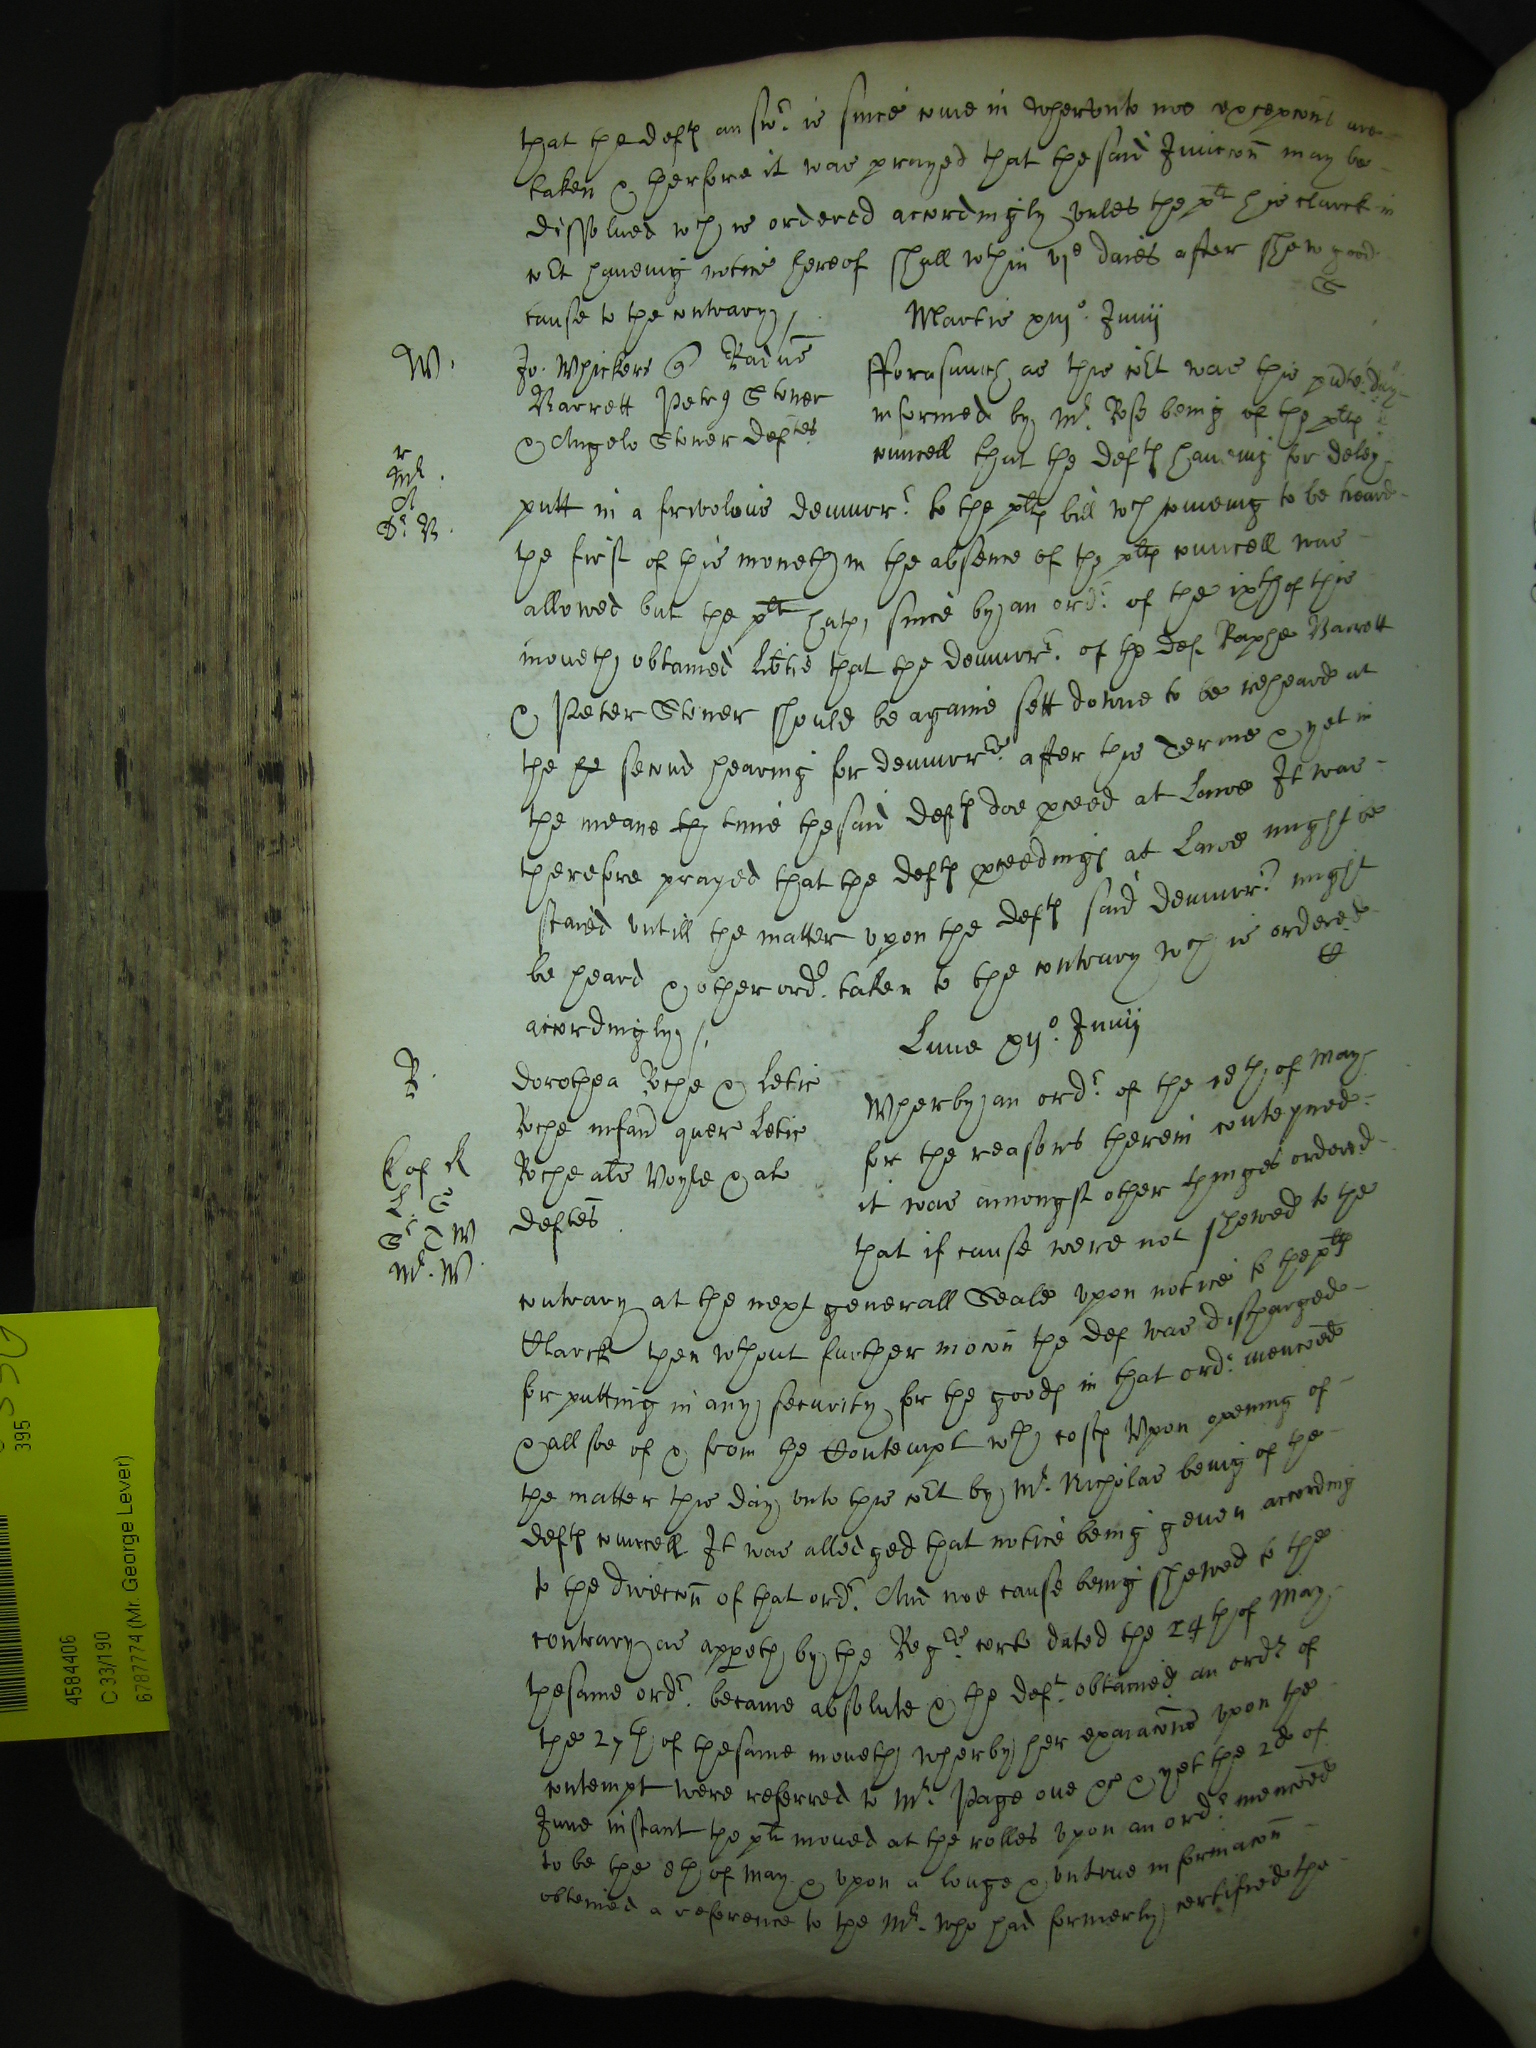 that the deftes answr. is since come in wherunto noe excepcons are
taken & therfore it was prayed that the said Iniuccon may be
dissolued wch is ordered accordingly vnles the plt his clarck in
cort haueing notice hereof shall wthin vje daies after shew good
cause to the contrary /
S
Martis xiijo. Junij
W.
Jo. Whickers Radus
Barrett Petrus Stoner
& Angelo Stoner deftes
r
Mr.
A
Dr. B.
fforasmuch as this cort was this pnte day
informed by Mr. Rose being of the pltes
councell that the deftes haueing for deley
putt in a frivolous demurr. to the pltes bill wch comeing to be heard
the first of this moneth in the absence of the pltes councell was
allowed but the plt hath since by an ordr. of the ixth of this
moneth obtained libtie that the demurr. of the def Raphe Barrett
& Peter Stoner should be againe sett downe to be reheard at
the he second hearing for demurrrs after this Terme & yet in
the meane th time the said deftes doe pceed at Lawe It was
therefore prayed that the deftes pceedinges at Lawe might be
staied vntill the matter vpon the deftes said demurr. might
be heard & other ordr. taken to the contrary wch is ordered
accordingly /.
Lune xijo. Junij
R.
Dorothea Roche & Letic
Roche infan quer Letic
Roche als Voyle & al
deftes.
L. C
Sr T W
Mr. W.
Wherby an ordr. of the 18th of May
for the reasons therein conteyned
it was amongst other thinges ordered
that if cause were not shewed to the
contrary at the next generall Seale vpon notice to the pltes
Clarck then wthout further mocon the def was discharged
for putting in any security for the goodes in that ordr. menconed
& allsoe of & from the Contempt wth costes Vpon opening of
the matter this day vnto this cort by Mr. Nicholas being of the
deftes councell It was alledged that notice being geuen according
to the direccon of that ordr. And noe cause being shewed to the
contrary as appeth by the Regrs certe dated the 24th of May
thesame ordr. became absolute & the deft. obtained an ordr. of
the 27th of thesame moneth wherby her exaiacons vpon the
contempt were referred to Mr. Page one &c & yet the 2d of
June instant the plt moued at the rolles vpon an ordr. menconed
to be the 8th of May & vpon a longe & vntrue informacon
obteined a reference to the Mr. who had formerly certified the
395
4584406
C 33/190
6787774 (Mr. George Lever)